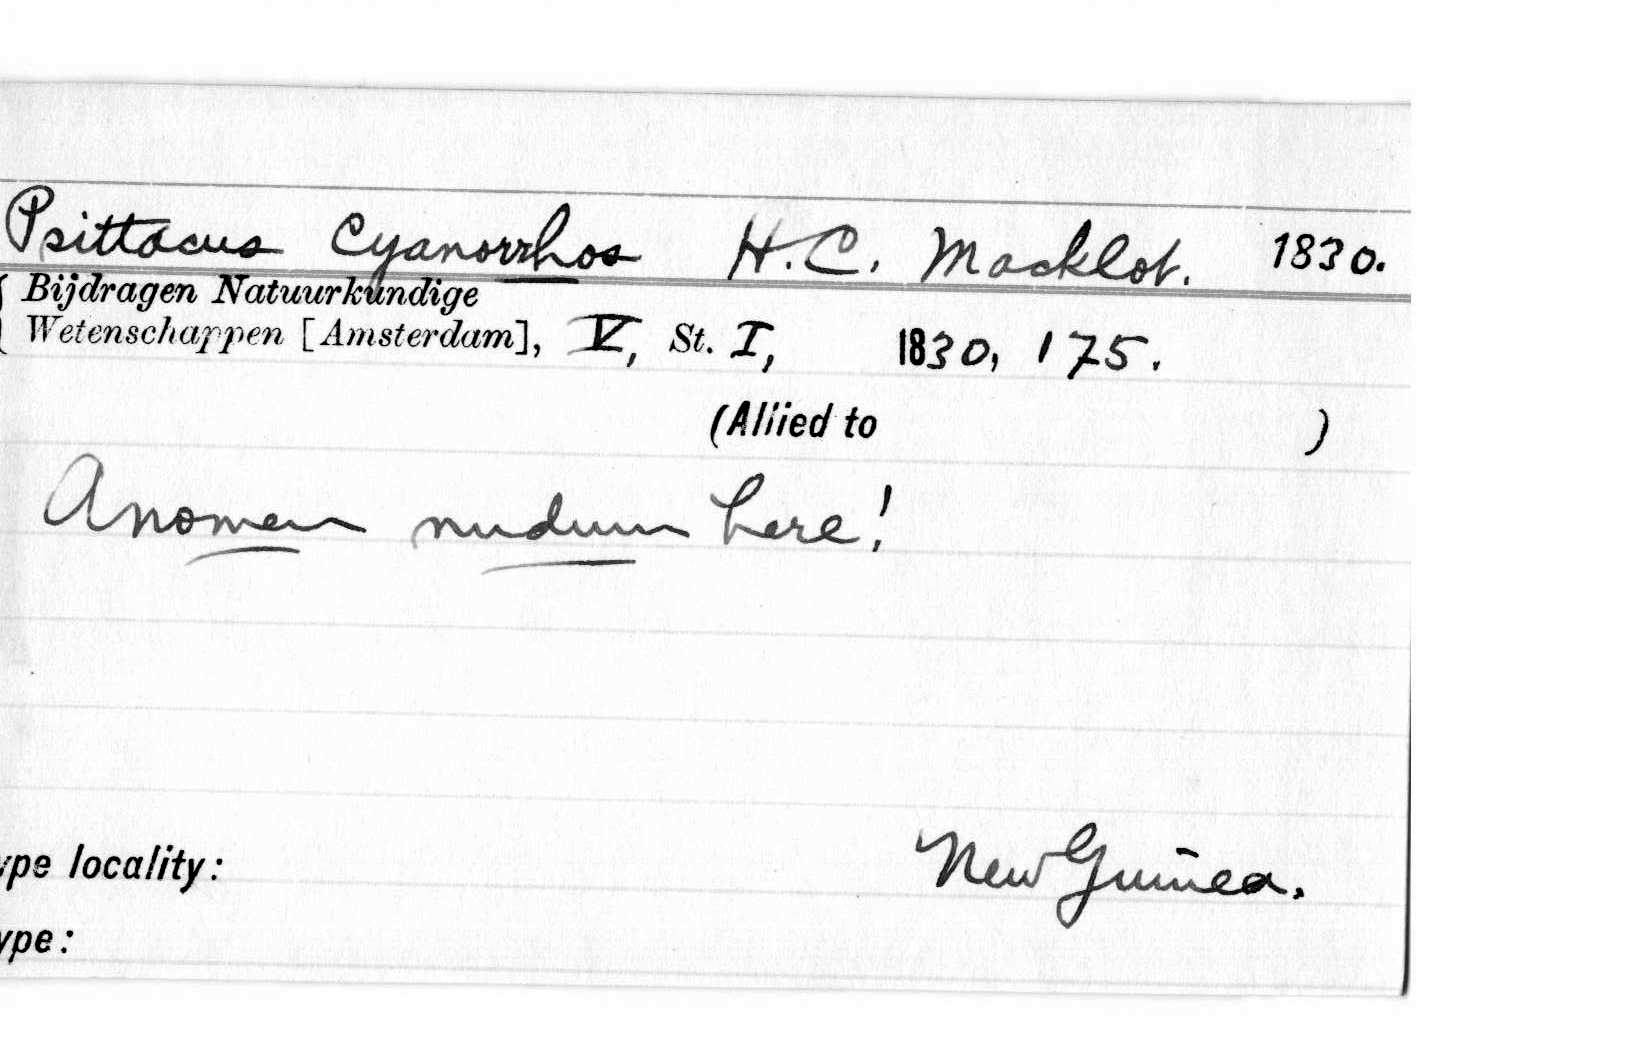 Psittacus Cyanorrhos H.C. Macklot. 1830.
Bijdragen Natuurkundige
Wetenschappen [Amsterdam], V, St. I, 1830, 175.
(Allied to )
A nomen nudum here!
ype locality: New Guinea.
ype: